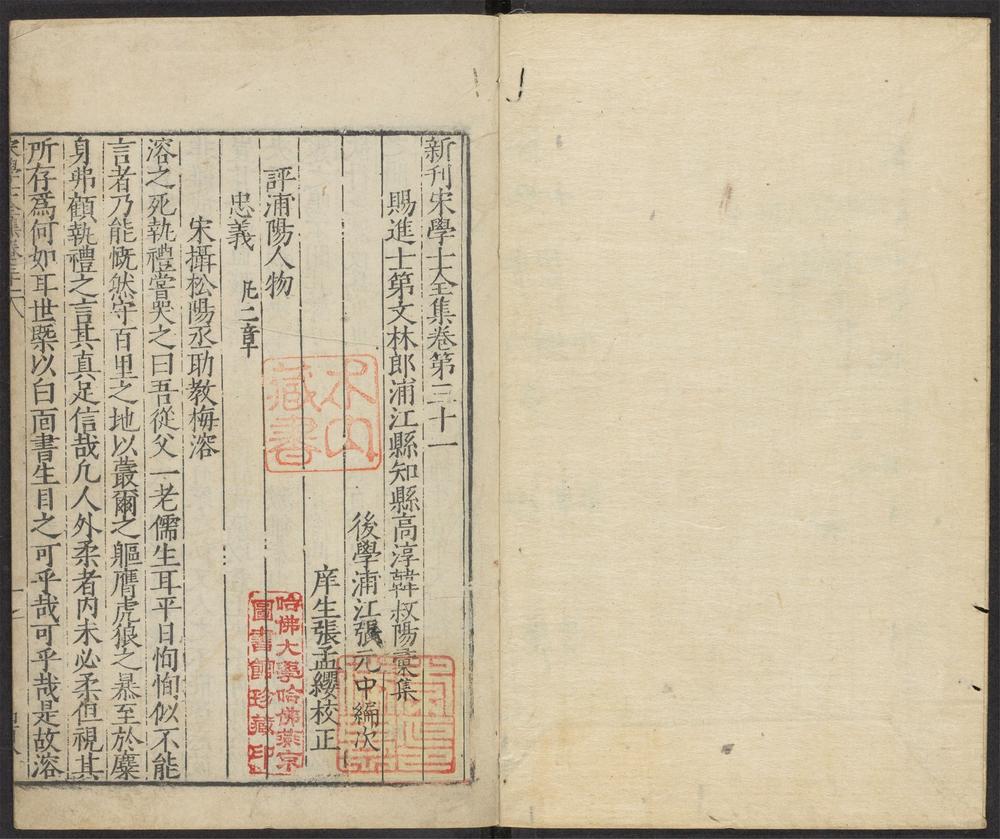 新刊宋學士全集卷第三十一
賜進士第文林郎浦江縣知縣高淳韓叔陽彙集
後學浦江張元中編次
庠生張孟纓校正
評浦陽人物
忠義 凡二章
宋攝松陽丞助教梅溶
溶之死執禮嘗哭之曰吾從父一老儒生耳平日恂恂似不能
言者乃能慨然守百里之地以蕞爾之軀膺虎狼之暴至於糜
身弗顧執禮之言其真足信哉凡人外柔者内未必柔但視其
所存爲何如耳世槩以白面書生目之可乎哉可乎哉是故溶
藏書
哈佛大學哈佛燕京
圖書館珍藏印